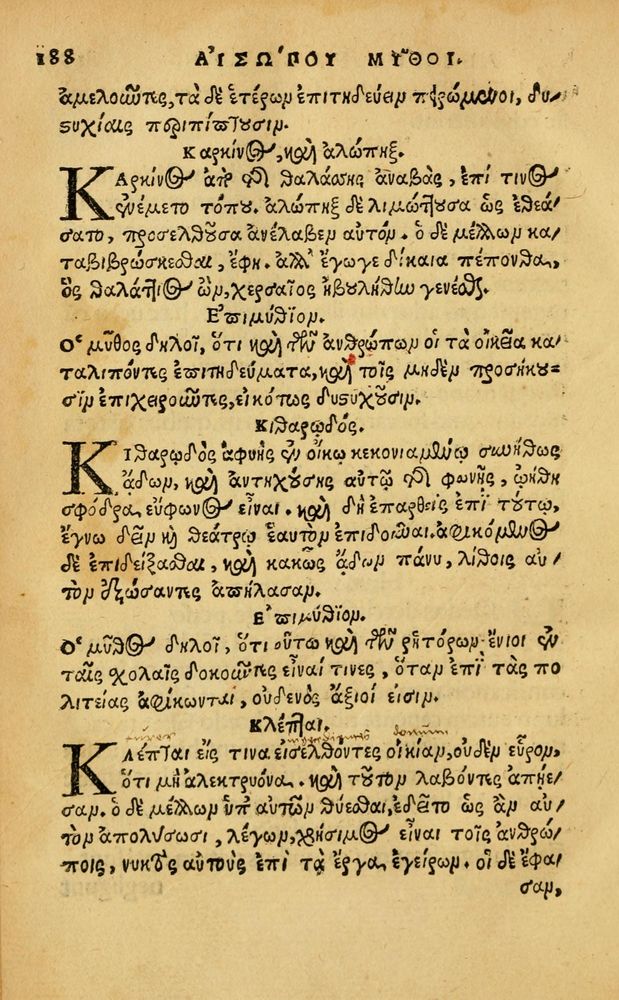 188 ΑἸΣΩ'ΠΟΥ ΜΥ͂ΘΟΙ.
ἀμελοῦντες, τὰ δὲ ἑτέρων ἐπιτηδεύειν πειρώμενοι, δυ/
στυχίαις περιπίπτουσιν.
Καρκίνος, καὶ ἀλώπηξ.
ΚΑρκίνος ἀπὸ τῆς θαλάσσης ἀναβὰς, ἐπί τινος
ἐνέμετο τόπου. ἀλώπηξ δὲ λιμώττουσα ὡς ἐθεά/
σατο, προσελθοῦσα ἀνέλαβεν αὐτόν. ὁ δὲ μέλλων κα/
ταβιβρώσκεσθαι, ἔφη. ἀλλ' ἔγωγε δίκαια πέπονθα,
ὃς θαλάττιος ὢν, χερσαῖος ἠβουλήθην γενέσθαι.
Ἐπιμύθϊον.
Ὁ μῦθος δηλοῖ, ὅτι καὶ τῶν ἀνθρώπων οἱ τὰ οἰκεῖα κα/
ταλιπόντες ἐπιτηδεύματα, καὶ τοῖς μηδὲν προσήκου=
σϊν ἐπιχειροῦντες, εἰκότως δυστυχοῦσιν.
Κιθαρῳδός.
ΚΙθαρῳδὸς ἀφυὴς ἐν οἴκῳ κεκονιαμένῳ συνήθως
ᾄδων, καὶ ἀντηχούσης αὐτῷ τῆς φωνῆς, ᾠήθη
σφόδρα εὔφωνος εἶναι. καὶ δὴ ἐπαρθεὶς ἐπὶ τούτῳ,
ἔγνω δεῖν καὶ θεάτρῳ ἑαυτὸν ἐπιδοῦναι. ἀφικόμενος
δὲ ἐπιδείξασθαι, καὶ κακῶς ᾄδων πάνυ, λίθοις αὐ/
τὸν ἐξώσαντες ἀπήλασαν.
Ἐπιμύθϊον.
Ὁ μῦθος δηλοῖ, ὅτι οὕτω καὶ τῶν ῥητόρων ἔνιοι ἐν
ταῖς σχολαῖς δοκοῦντες εἶναί τινες, ὅταν ἐπὶ τὰς πο
λιτείας ἀφίκωνται, οὐδενὸς ἄξιοί εἰσιν.
Κλέπται.
ΚΛέπται εἴς τινα εἰσελθόντες οἰκίαν, οὐδὲν εὗρον,
ὅτι μὴ ἀλεκτρυόνα. καὶ τοῦτον λαβόντες ἀπῄε/
σαν. ὁ δὲ μέλλων ὑπ' αὐτῶν θύεσθαι, ἐδεῖτο ὡς ἂν αὐ/
τὸν ἀπολύσωσι, λέγων, χρήσιμος εἶναι τοῖς ἀνθρώ/
ποις, νυκτὸς αὐτοὺς ἐπὶ τὰ ἔργα ἐγείρων. οἱ δὲ ἔφα/
σαν,